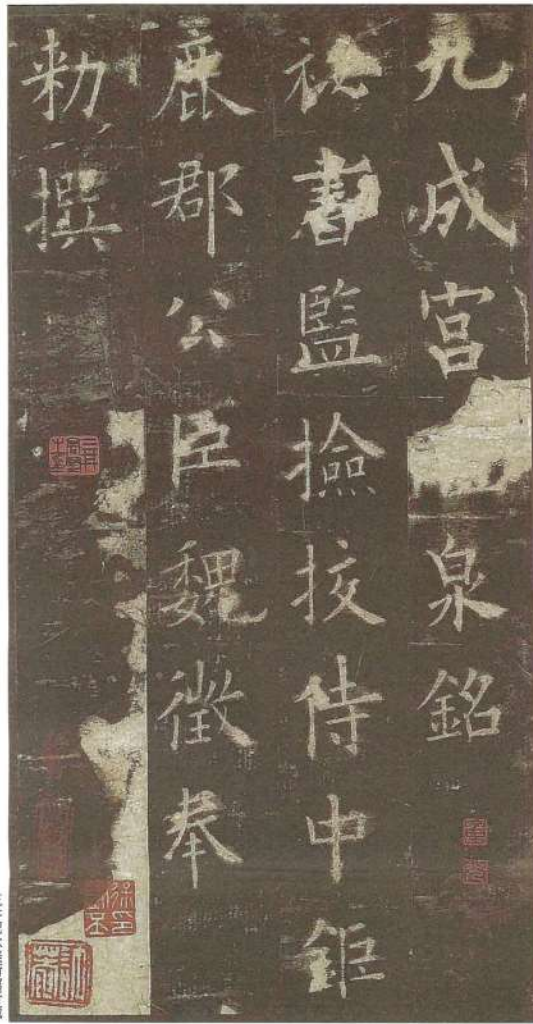 九成宫泉銘
祕書監撿挍侍中鉅
鹿郡公臣魏徵奉
勑撰